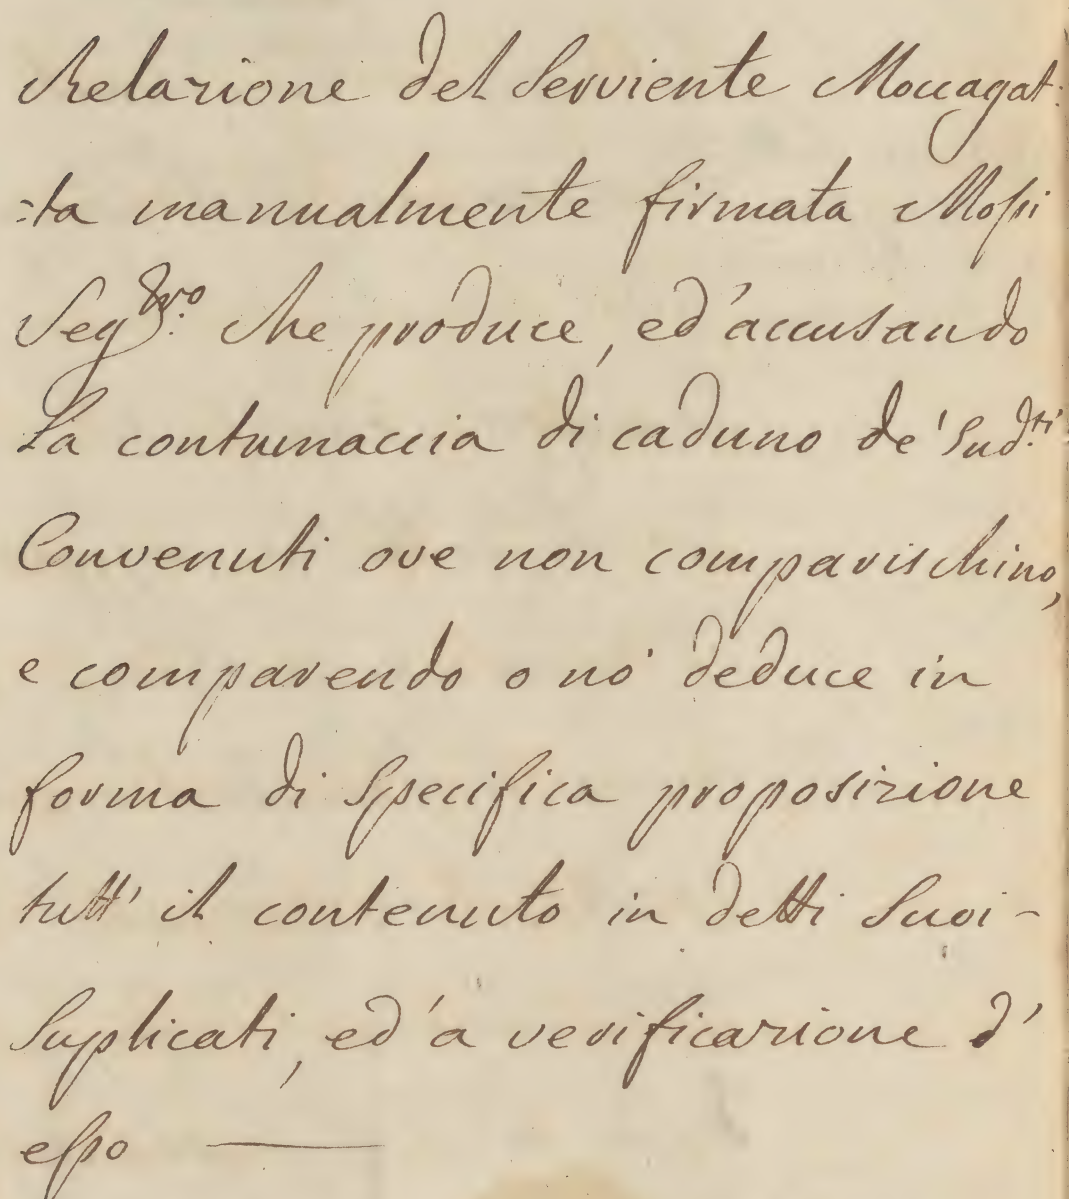 Relazione del Serviente Moccagat:
=ta manualmente firmata Mossi
Seg.ro che produce, ed' accusando
La contumaccia di caduno de' Sud.ti
Convenuti ove non comparischino,
e comparendo o nò deduce in
forma di Specifica proposizione
tutt' il contenuto in detti Suoi-
Suplicati, ed' a verificazione d'
esso